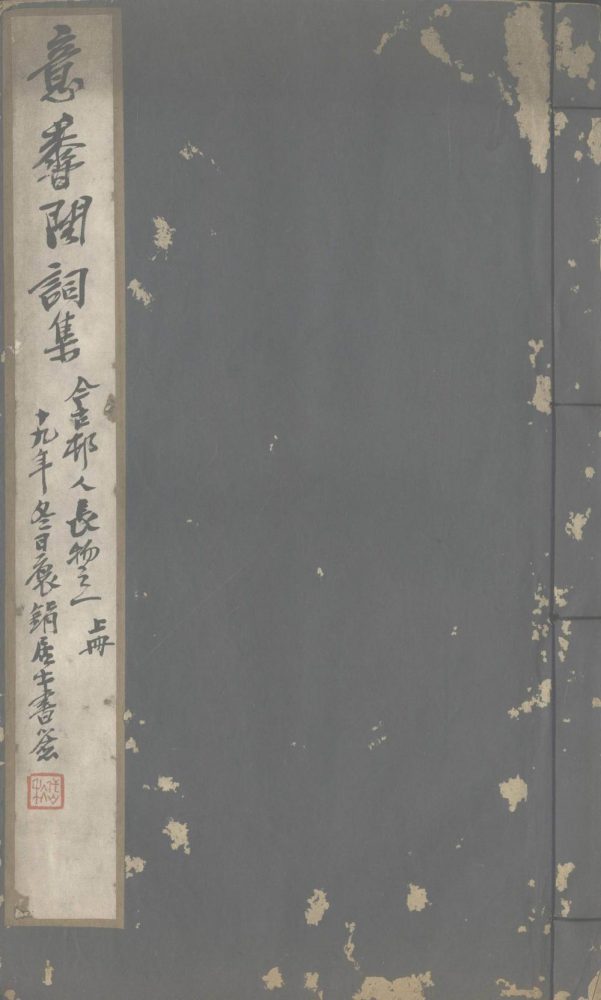 意香閣詞集
舍邨人長物之一 上冊
十九年冬日裒錦居士書簽